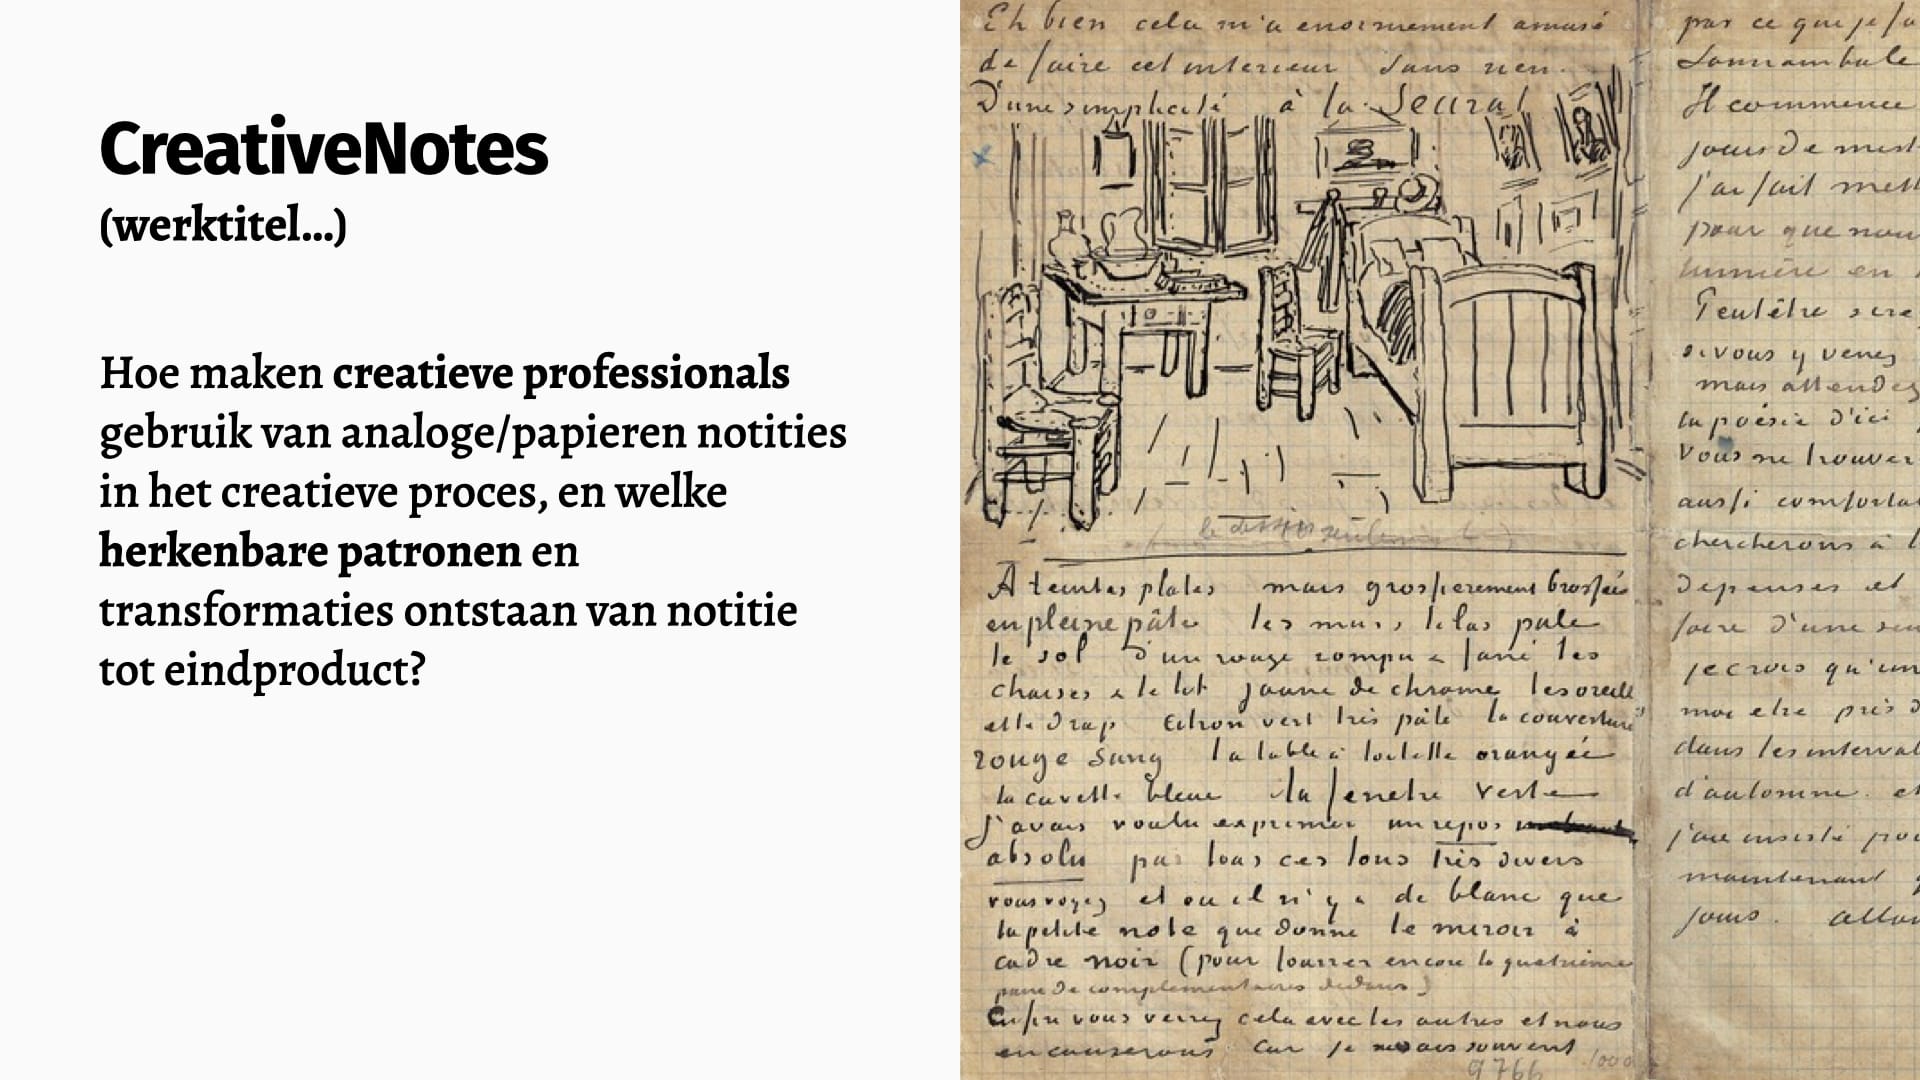 CreativeNotes
(werktitel...)
Hoe maken creatieve professionals
gebruik van analoge/papieren notities
in het creatieve proces, en welke
herkenbare patronen en
transformaties ontstaan van notitie
tot eindproduct?
Eh bien cela m'a enormement amusé
de faire cet interieur sans rien.
D'une simplicité à la Seurat
A teintes plates mais grossierement brossées
en pleine pâte les murs lilas pale
le sol d'un rouge rompu & fané les
chaises & le lit jaune de chrome les oreillers
et le drap citron vert très pâle la couverture
rouge sang la table à toilette orangée
la cuvette bleue la fenetre verte
J'avais voulu exprimer un repos
absolu par tous ces tons très divers
vous voyez et ou il n'y a de blanc que
la petite note que donne le miroir à
cadre noir (pour fourrer encore la quatrième
paire de complementaires dedans)
Enfin vous verrez cela avec les autres et nous
en causerons car je ne sais souvent
9766
par ce que je fa
Somnambule
Il commence
jours de mist
j'ai fait mett
pour que nou
lumière en
Peutêtre sere
si vous y venez
mais attendez
la poésie d'ici
Vous ne trouver
aussi comfortab
chercherons à l
depenses et
faire d'une seu
je crois qu'un
moi etre près d
dans les interval
d'automne. et
maintenant q
jours. allon